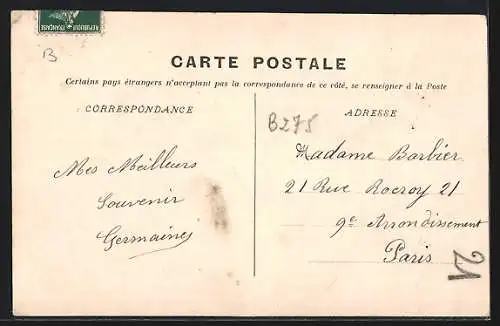 REPUBLIQUE FRANÇAISE
B
CARTE POSTALE
Certains pays étrangers n'acceptant pas la correspondance de ce côté, se renseigner à la Poste
CORRESPONDANCE
Mes Meilleurs
Souvenir
Germaine
B275
ADRESSE
Madame Barbier
21 Rue Rocroy 21
9e Arrondissement
Paris
21